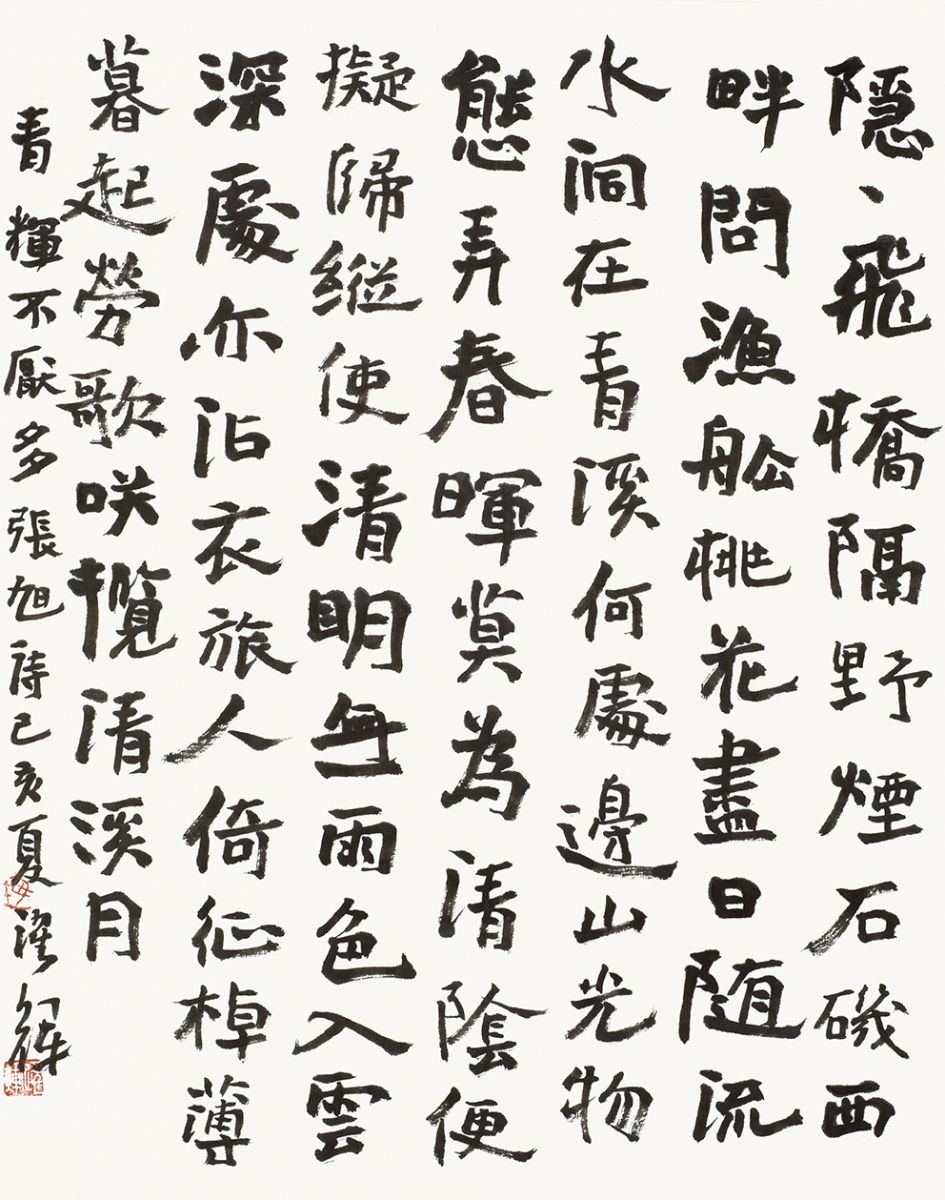 隐、飛橋隔野煙石磯西
畔問漁舩桃花盡日随流
水洞在青溪何處邊山光物
態弄春暉莫為清陰便
擬歸縱使清明無雨色入雲
深處亦沾衣旅人倚征棹薄
暮起勞歌咲攬清溪月
青輝不厭多張旭詩己亥夏